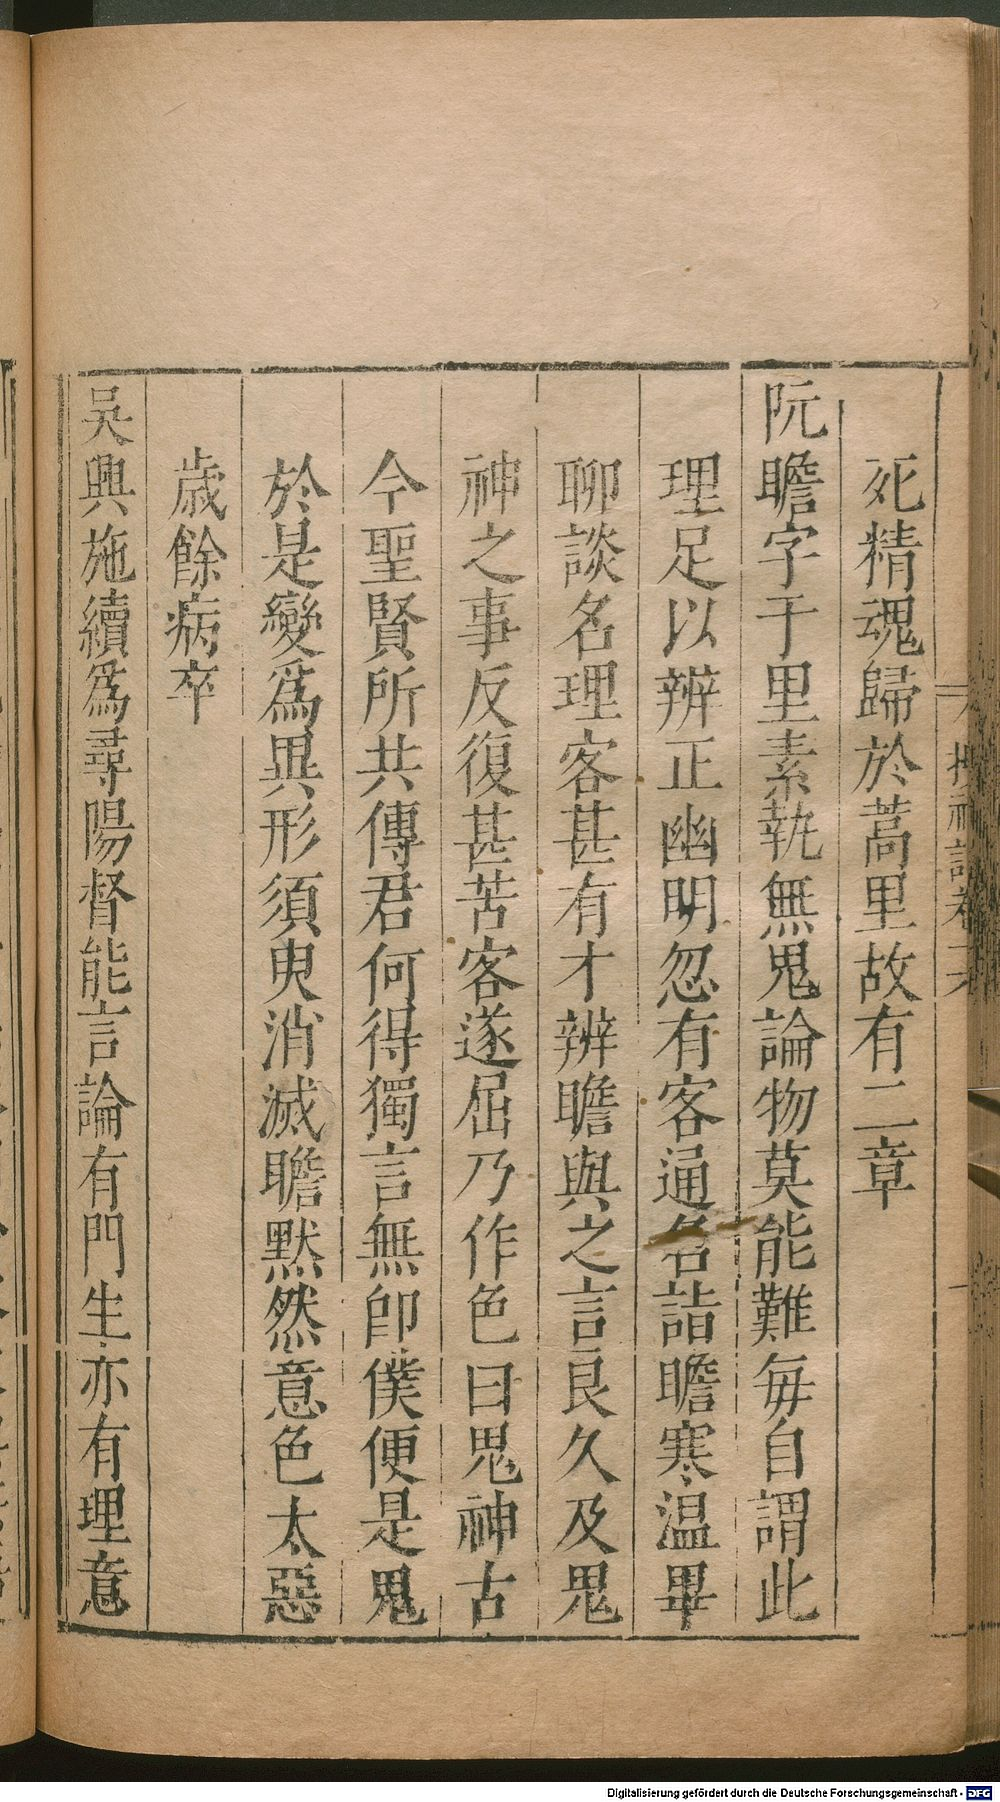 死精魂歸於蒿里故有二章
阮瞻字千里素執無鬼論物莫能難每自謂此
理足以辨正幽明忽有客通名詣瞻寒溫畢
聊談名理客甚有才辨瞻與之言良久及鬼
神之事反復甚苦客遂屈乃作色曰鬼神古
今聖賢所共傳君何得獨言無即僕便是鬼
於是變爲異形須臾消滅瞻默然意色太惡
歲餘病卒
吳興施續爲尋陽督能言論有門生亦有理意
Digitalisierung gefördert durch die Deutsche Forschungsgemeinschaft - DFG